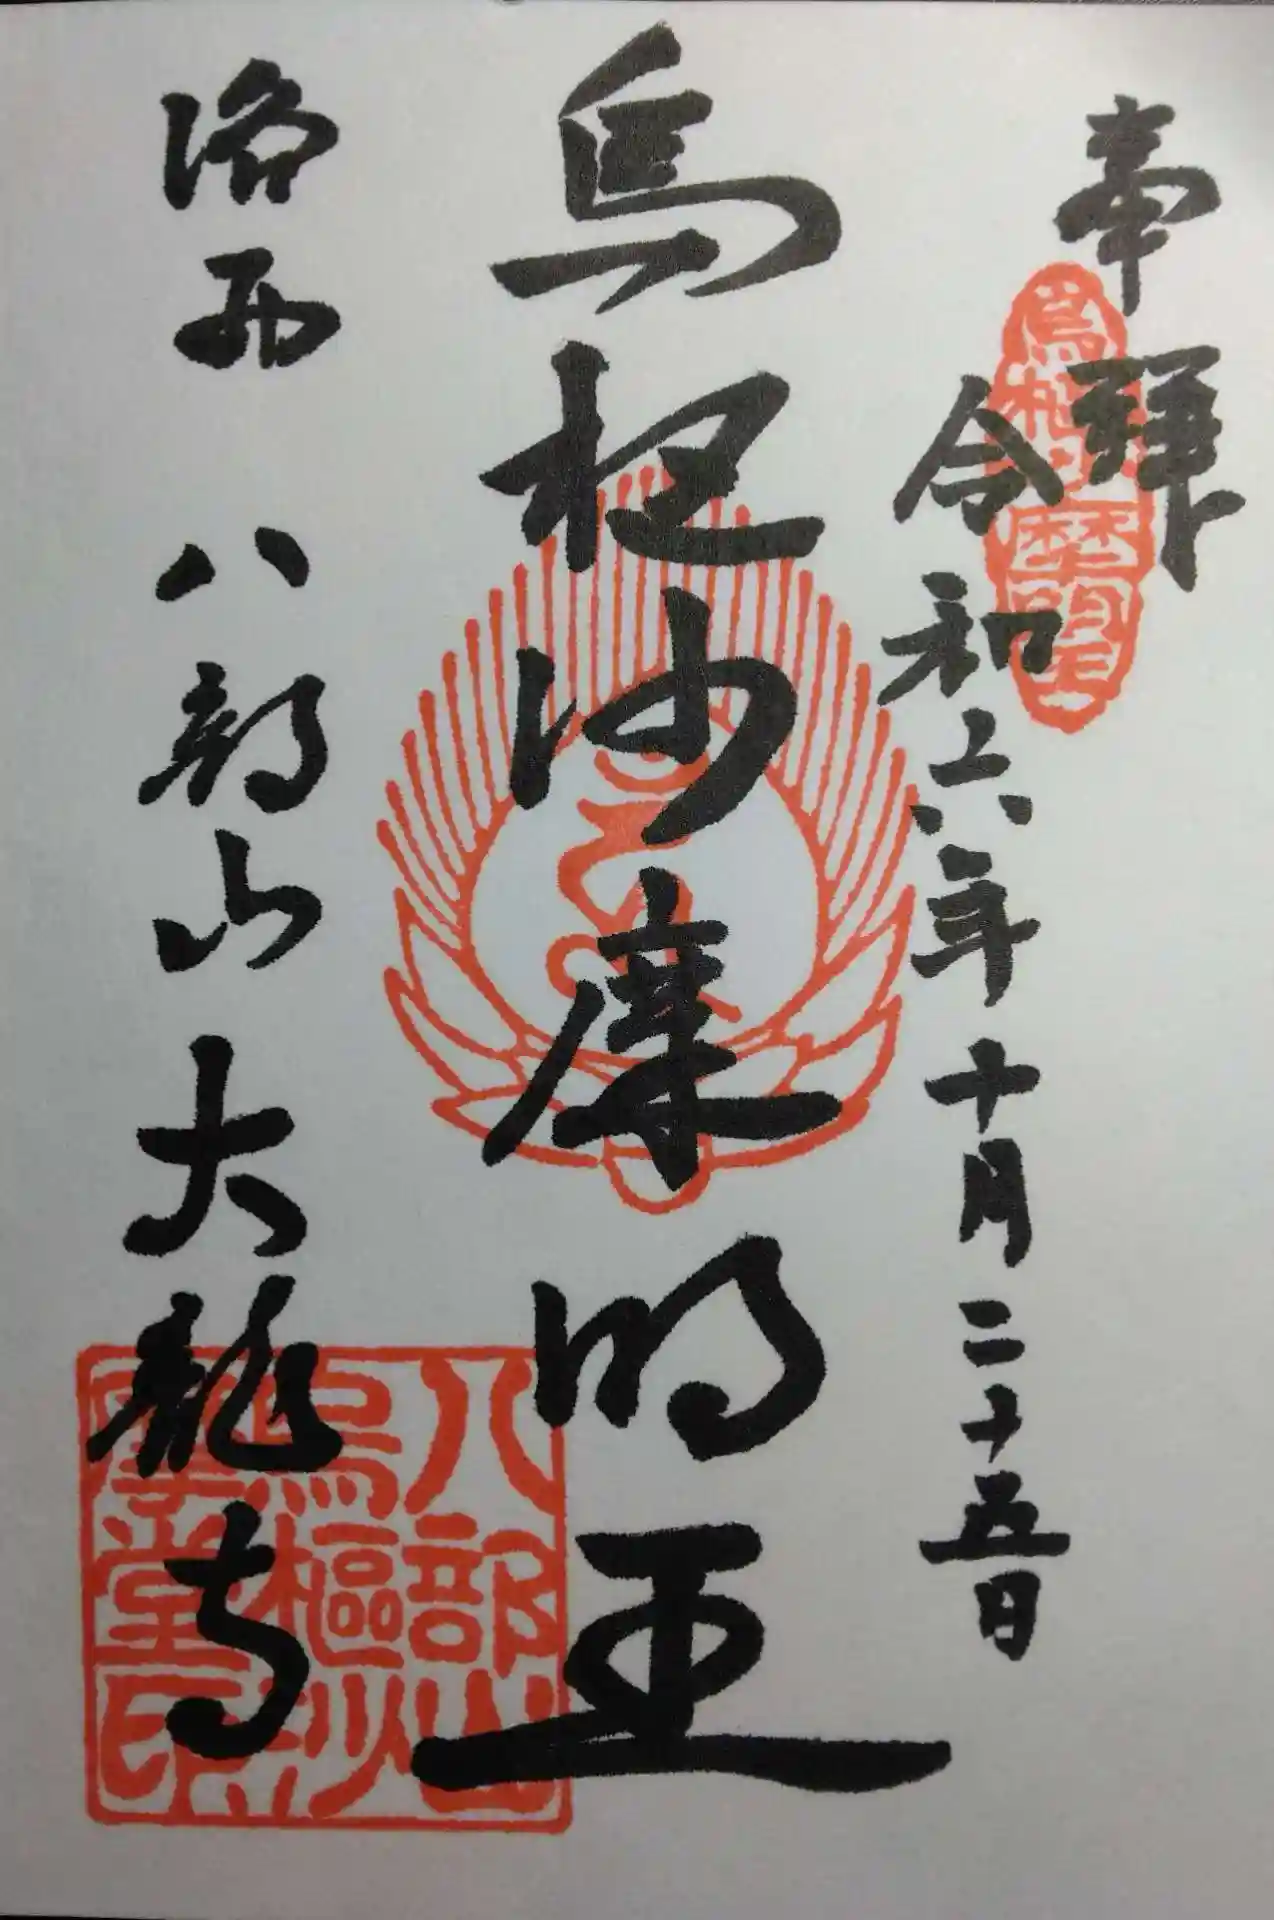 奉拝
令和六年十月二十五日
烏枢沙摩明王
洛西 八部山 大龍寺
八部山
烏樞沙
摩堂印